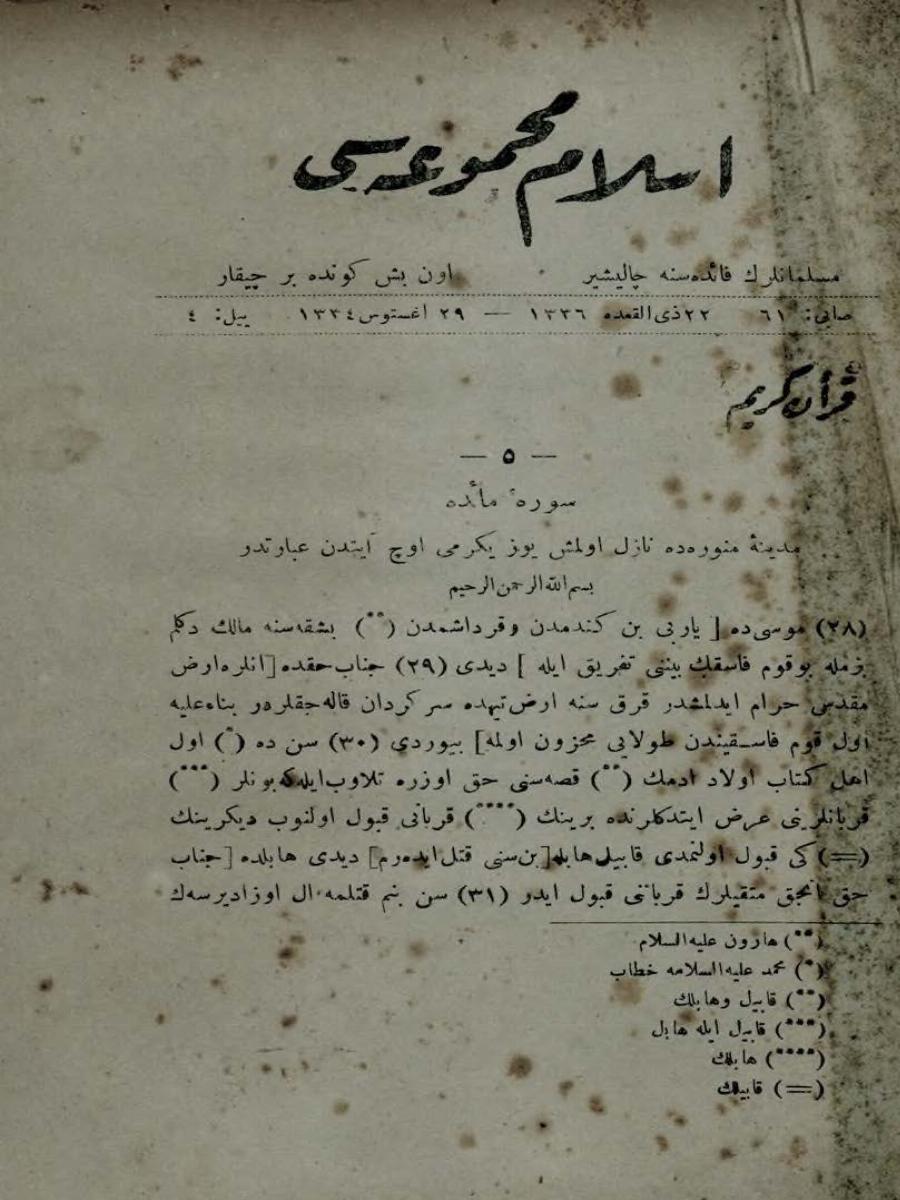 اسلام مجموعه‌سی
مسلمانلرك فائده‌سنه چالیشیر اون بش كونده بر چیقار
صایی: ٦١ ٢٢ ذی القعده ١٣٣٦ — ٢٩ اغستوس ١٣٣٤ ییل: ٤
قرأن كریم
— ٥ —
سورهٔ مأئده
مدینهٔ منوره‌ده نازل اولمش یوز یكرمی اوچ آیتدن عبارتدر
بسم الله الرحمن الرحیم
(٢٨) موسی‌ده [ یاربی بن كندمدن وقرداشمدن (**) بشقه‌سنه مالك دكلم
بزمله بوقوم فاسقك بینی تفریق ایله ] دیدی (٢٩) جناب حقده [ انلره ارض
مقدسی حرام ایدلمشدر قرق سنه ارض تیهده سركردان قاله‌جقلردر بناءعلیه
اول قوم فاسقیندن طولایی محزون اولمه] بیوردی (٣٠) سن ده (*) اول
اهل كتاب اولاد ادمك (**) قصه‌سنی حق اوزره تلاوت‌ایله‌كه بونلر (***)
قربانلرینی عرض ایتدكلرنده برینك (****) قربانی قبول اولنوب دیكرینك
(=) كی قبول اولنمدی قابیل هابله[بن‌سنی قتل‌ایده‌رم] دیدی هابلده [جناب
حق انجق متقیلرك قربانی قبول ایدر (٣١) سن بنم قتلمه ال اوزادیرسه‌ك
(**) هارون علیه السلام
(*) محمد علیه السلامه خطاب
(**) قابیل وهابلك
(***) قابیل ایله هابل
(****) هابلك
(=) قابیلك